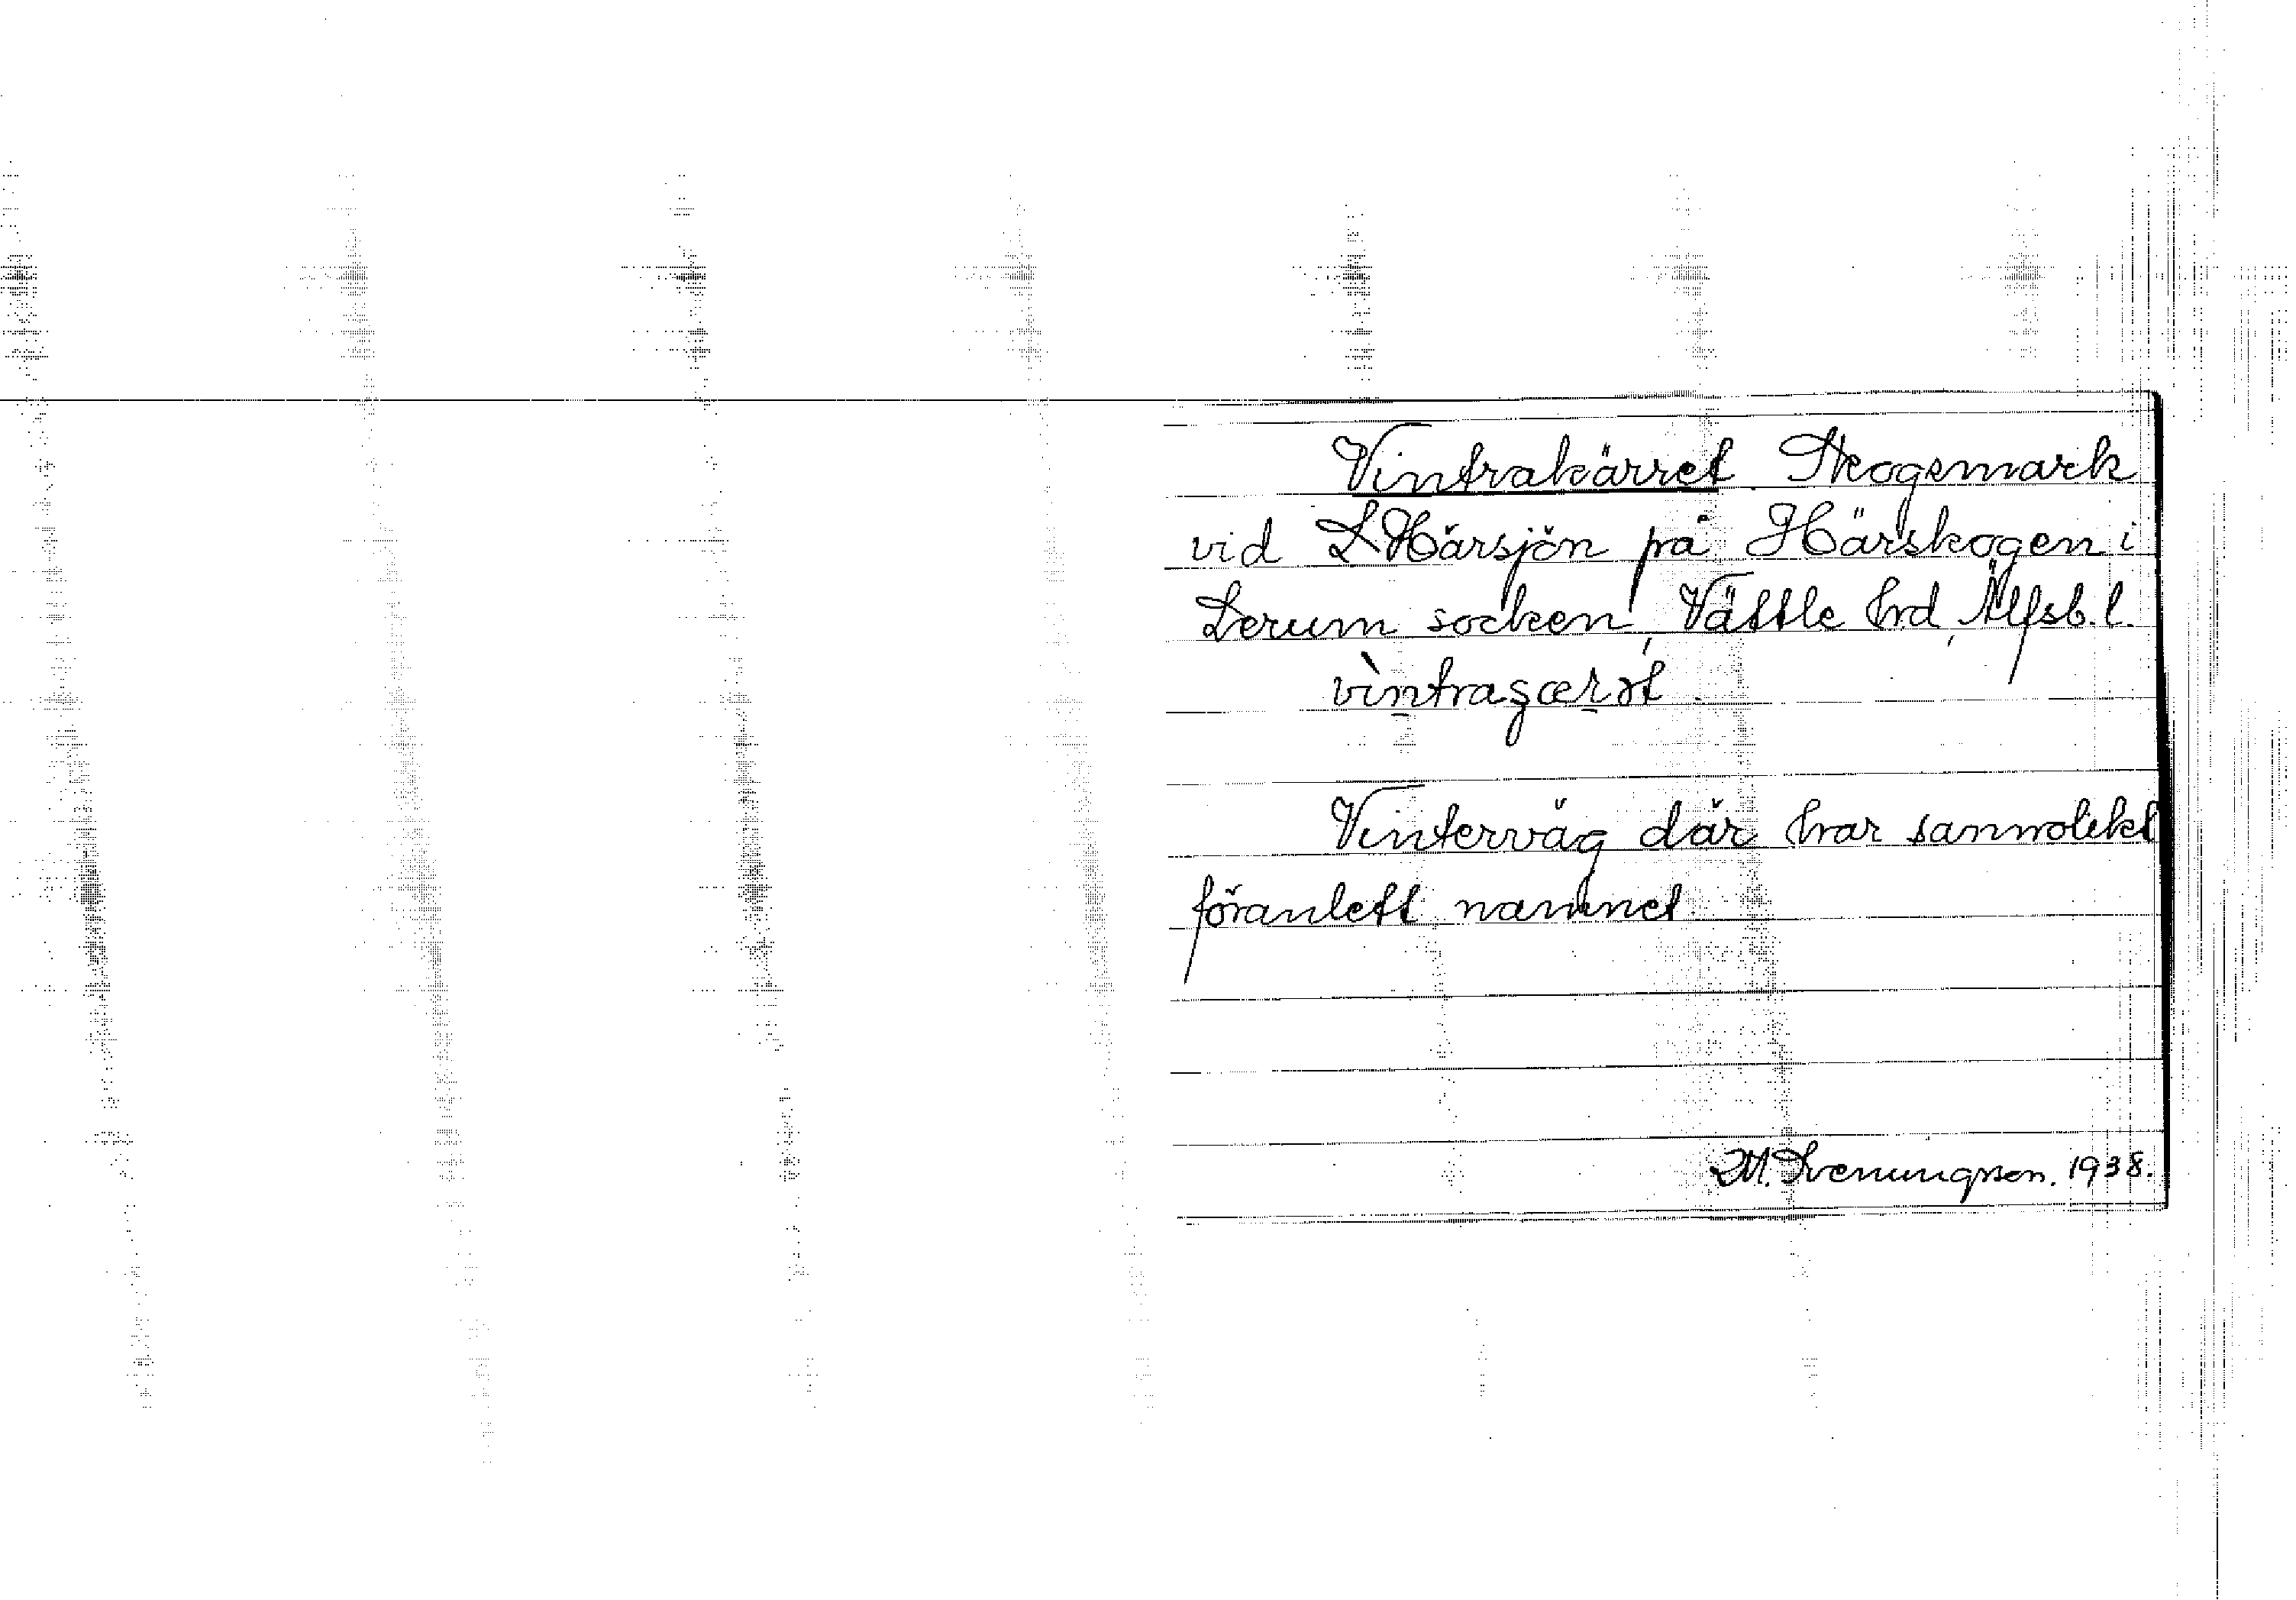 Vintrakärret. Skogsmark
vid L Härsjön på Härskogen i
Lerum socken, Vättle hrd, Älfsb. l.
Vinterväg där har sannolikt
föranlett namnet.
M. Svenungsson. 1938.